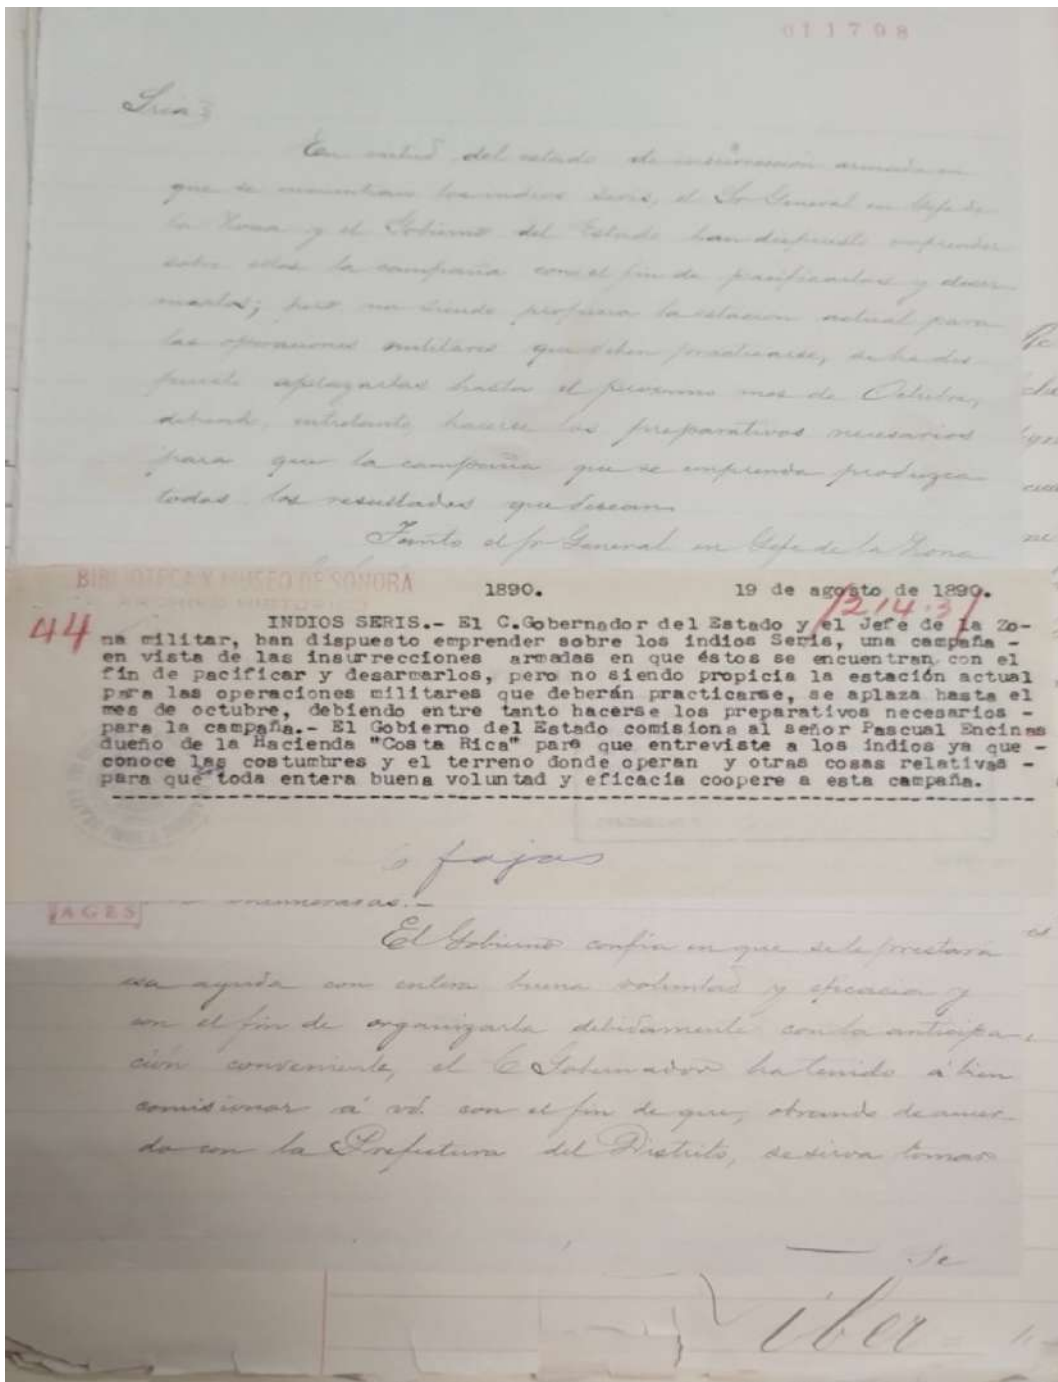 011798
Sria
En virtud del estado de insurrección armada en
que se encuentran los indios Seris, el Sr General en Gefe de
la Zona y el Gobierno del Estado han dispuesto emprender
sobre ellos la campaña con el fin de pacificarlos y desar-
marlos; pero no siendo propicia la estacion actual para
las operaciones militares que deben practicarse, se ha dis-
puesto aplazarlas hasta el proximo mes de Octubre,
debiendo, entretanto hacerse los preparativos necesarios
para que la campaña que se emprenda produzca
todos los resultados que desean.
Tanto el Sr General en Gefe de la Zona
BIBLIOTECA Y MUSEO DE SONORA
ARCHIVO HISTORICO
1890. 19 de agosto de 1890.
44
INDIOS SERIS.- El C.Gobernador del Estado y el Jefe de la Zo-
na militar, han dispuesto emprender sobre los indios Seris, una campaña -
en vista de las insurrecciones armadas en que éstos se encuentran con el
fin de pacificar y desarmarlos, pero no siendo propicia la estación actual
para las operaciones militares que deberán practicarse, se aplaza hasta el
mes de octubre, debiendo entre tanto hacerse los preparativos necesarios -
para la campaña.- El Gobierno del Estado comisiona al señor Pascual Encinas
dueño de la Hacienda "Costa Rica" para que entreviste a los indios ya que -
conoce las costumbres y el terreno donde operan y otras cosas relativas -
para que toda entera buena voluntad y eficacia coopere a esta campaña.
fojas
AGES
El Gobierno confia en que se le prestara
esa ayuda con entera buena voluntad y eficacia y
con el fin de organizarla debidamente con la anticipa-
ción conveniente, el C Gobernador ha tenido á bien
comisionar á vd. con el fin de que, obrando de acuer-
do con la Prefectura del Distrito, se sirva tomar
Se
Liber